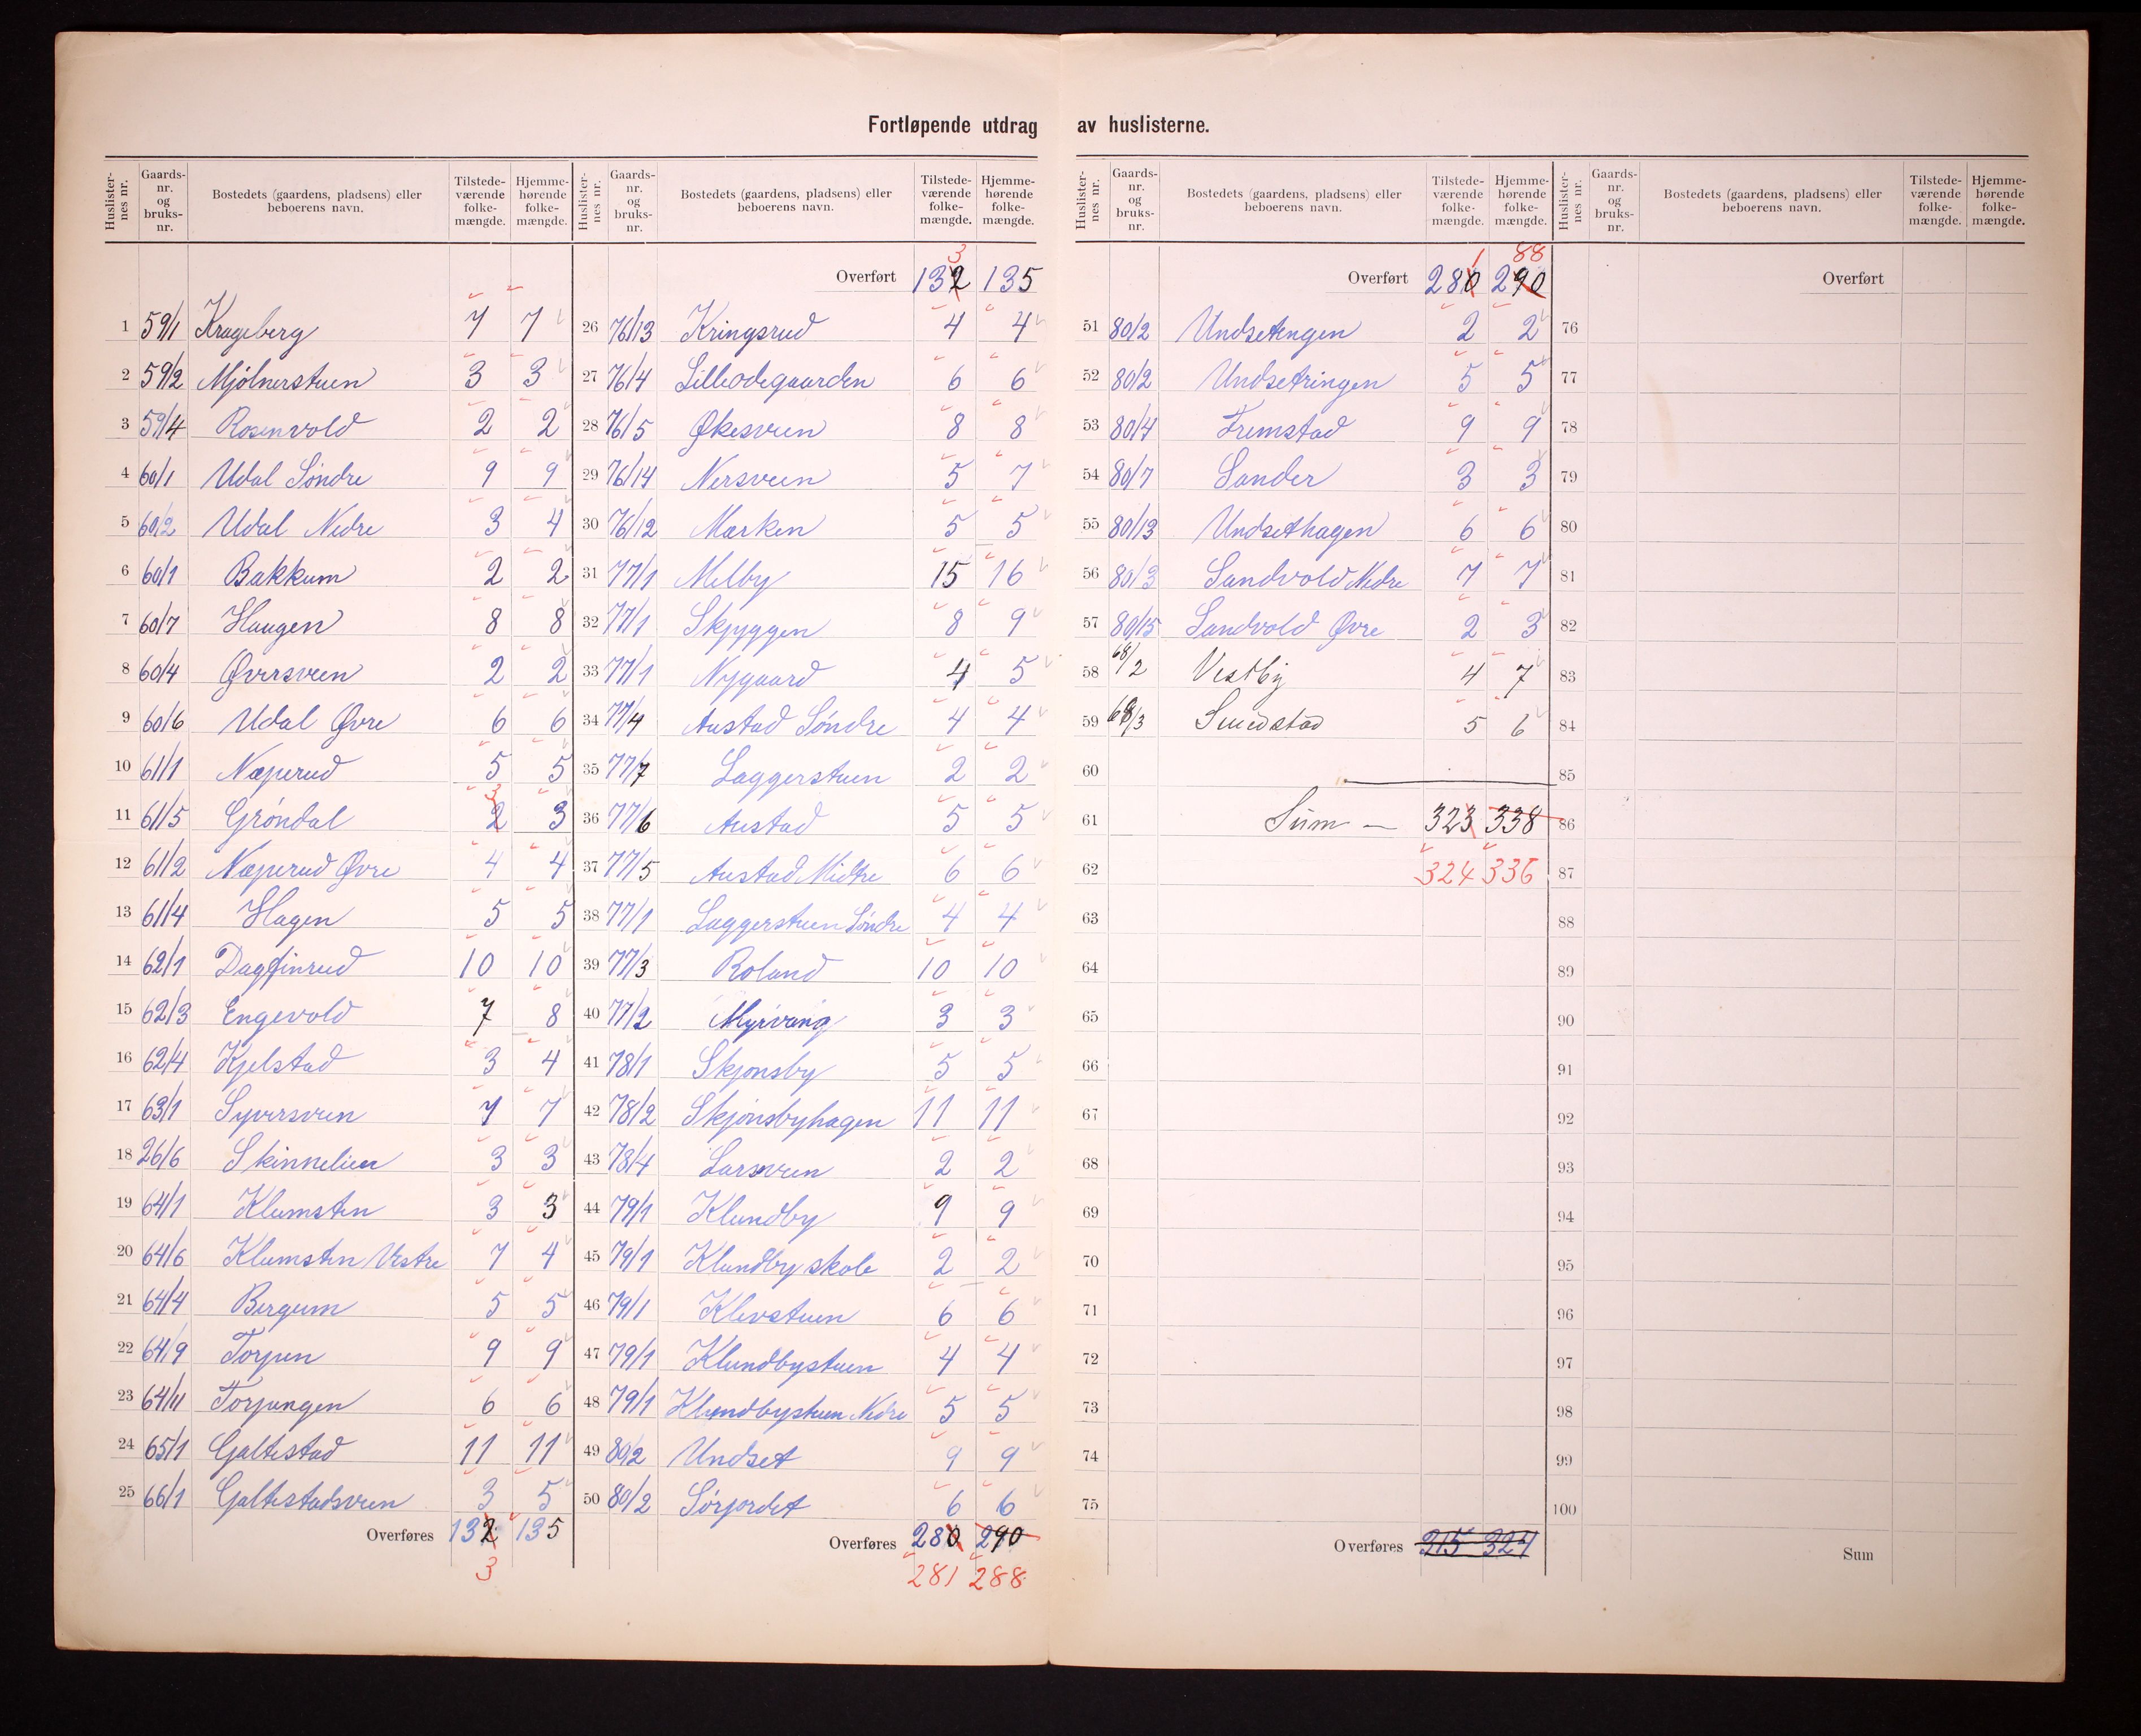 Fortløpende utdrag av huslisterne.
Huslister-nes nr. Gaards-nr. og bruks-nr. Bostedets (gaardens, pladsens) eller beboerens navn. Tilstede-værende folke-mængde. Hjemme-hørende folke-mængde.
1 59/1 Krageberg 7 7
2 59/2 Mjølnerstuen 3 3
3 59/4 Rosenvold 2 2
4 60/1 Udal Søndre 9 9
5 60/2 Udal Nedre 3 4
6 60/1 Bakkum 2 2
7 60/7 Haugen 8 8
8 60/4 Øversveen 2 2
9 60/6 Udal Øvre 6 6
10 61/1 Næperud 5 5
11 61/5 Grøndal 2 3 3
12 61/2 Næperud Øvre 4 4
13 61/4 Hagen 5 5
14 62/1 Dagfinrud 10 10
15 62/3 Engevold 7 8
16 62/4 Kjelstad 3 4
17 63/1 Syversveen 7 7
18 26/6 Skinnelien 3 3
19 64/1 Klumsten 3 3
20 64/6 Klumsten Vestre 7 4
21 64/4 Bergum 5 5
22 64/9 Torpen 9 9
23 64/11 Torpengen 6 6
24 65/1 Galtestad 11 11
25 66/1 Galtestadsveen 3 5
Overføres 132 135
3
Huslister-nes nr. Gaards-nr. og bruks-nr. Bostedets (gaardens, pladsens) eller beboerens navn. Tilstede-værende folke-mængde. Hjemme-hørende folke-mængde.
3
Overført 132 135
26 76/13 Kringsrud 4 4
27 76/4 Lilleødegaarden 6 6
28 76/5 Økesveen 8 8
29 76/14 Nersveen 5 7
30 76/12 Marken 5 5
31 77/1 Melby 15 16
32 77/1 Skjyggen 8 9
33 77/1 Nygaard 4 5
34 77/4 Austad Søndre 4 4
35 77/7 Laggerstuen 2 2
36 77/6 Austad 5 5
37 77/5 Austad Midtre 6 6
38 77/1 Laggerstuen Søndre 4 4
39 77/3 Roland 10 10
40 77/2 Myrvang 3 3
41 78/1 Skjønsby 5 5
42 78/2 Skjønsbyhagen 11 11
43 78/4 Larsveen 2 2
44 79/1 Klundby 9 9
45 79/1 Klundby skole 2 2
46 79/1 Klevstuen 6 6
47 79/1 Klundbystuen 4 4
48 79/1 Klundbystuen Nedre 5 5
49 80/2 Undset 9 9
50 80/2 Sørjordet 6 6
Overføres 280 290
281 288
Huslister-nes nr. Gaards-nr. og bruks-nr. Bostedets (gaardens, pladsens) eller beboerens navn. Tilstede-værende folke-mængde. Hjemme-hørende folke-mængde.
1 88
Overført 280 290
51 80/2 Undsetengen 2 2
52 80/2 Undsetringen 5 5
53 80/4 Fremstad 9 9
54 80/7 Sander 3 3
55 80/13 Undsethagen 6 6
56 80/3 Sandvold Nedre 7 7
57 80/15 Sandvold Øvre 2 3
58 68/2 Vestby 4 7
59 68/3 Smedstad 5 6
60
61 Sum — 323 338
62 324 336
63
64
65
66
67
68
69
70
71
72
73
74
75
Overføres 315 324
Huslister-nes nr. Gaards-nr. og bruks-nr. Bostedets (gaardens, pladsens) eller beboerens navn. Tilstede-værende folke-mængde. Hjemme-hørende folke-mængde.
Overført
76
77
78
79
80
81
82
83
84
85
86
87
88
89
90
91
92
93
94
95
96
97
98
99
100
Sum